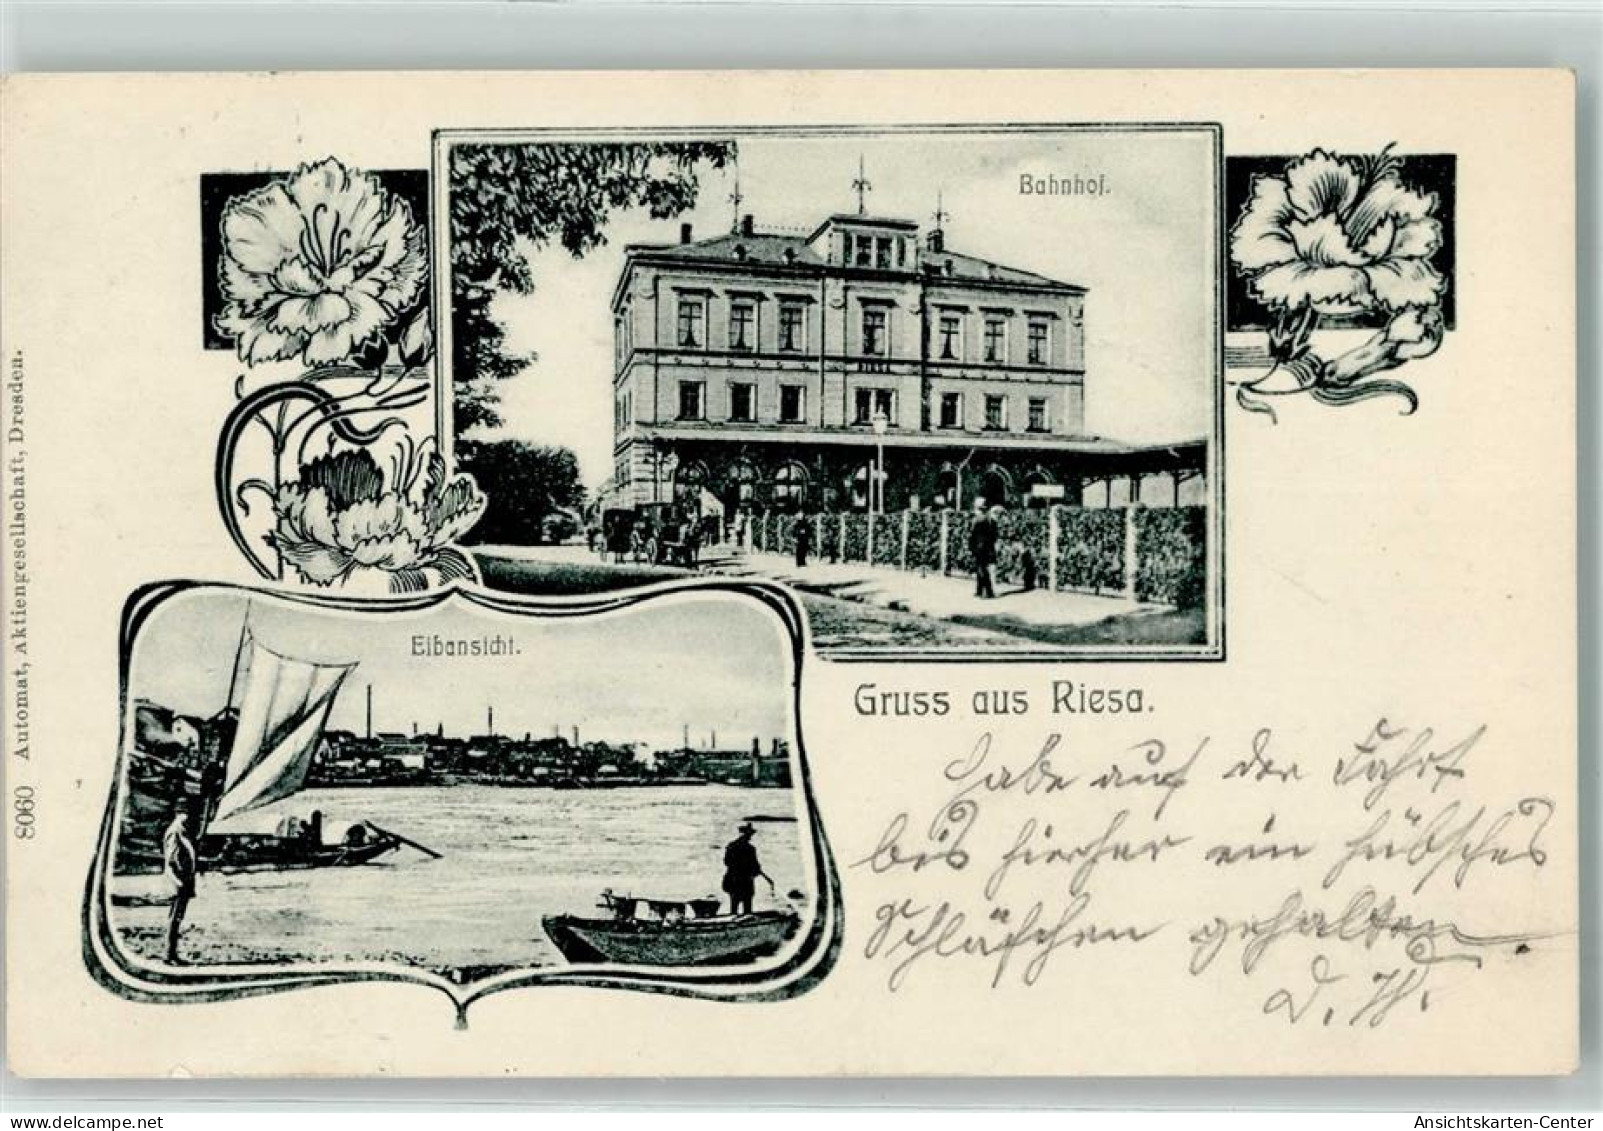 Bahnhof.
RIESA
Elbansicht.
Gruss aus Riesa.
Habe auf der Fahrt
bis hierher ein hübsches
Schläfchen gehalten.
D. W.
8060 Automat, Aktiengesellschaft, Dresden.
www.delcampe.net
Ansichtskarten-Center